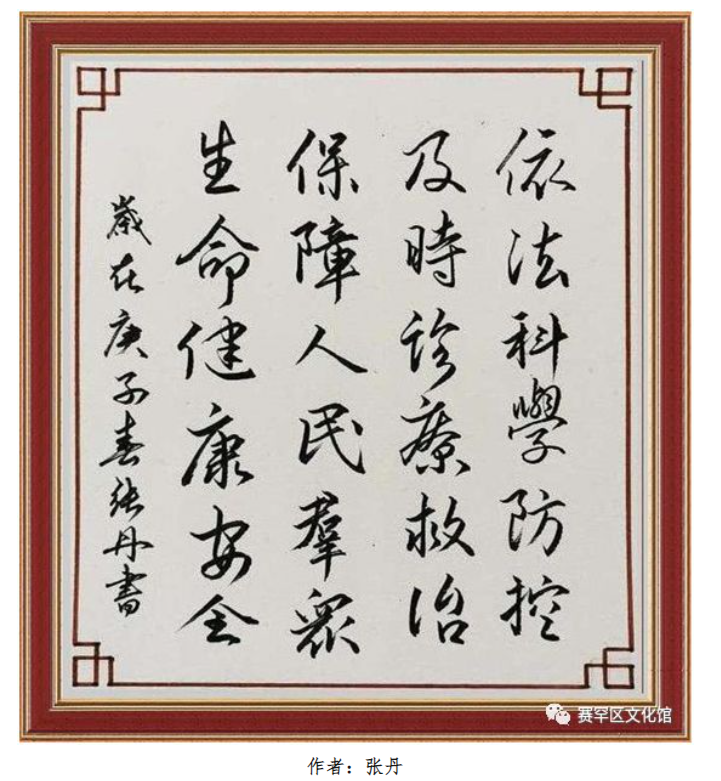 依法科學防控
及時診療救治
保障人民羣眾
生命健康安全
歲在庚子春張丹書
赛罕区文化馆
作者：张丹